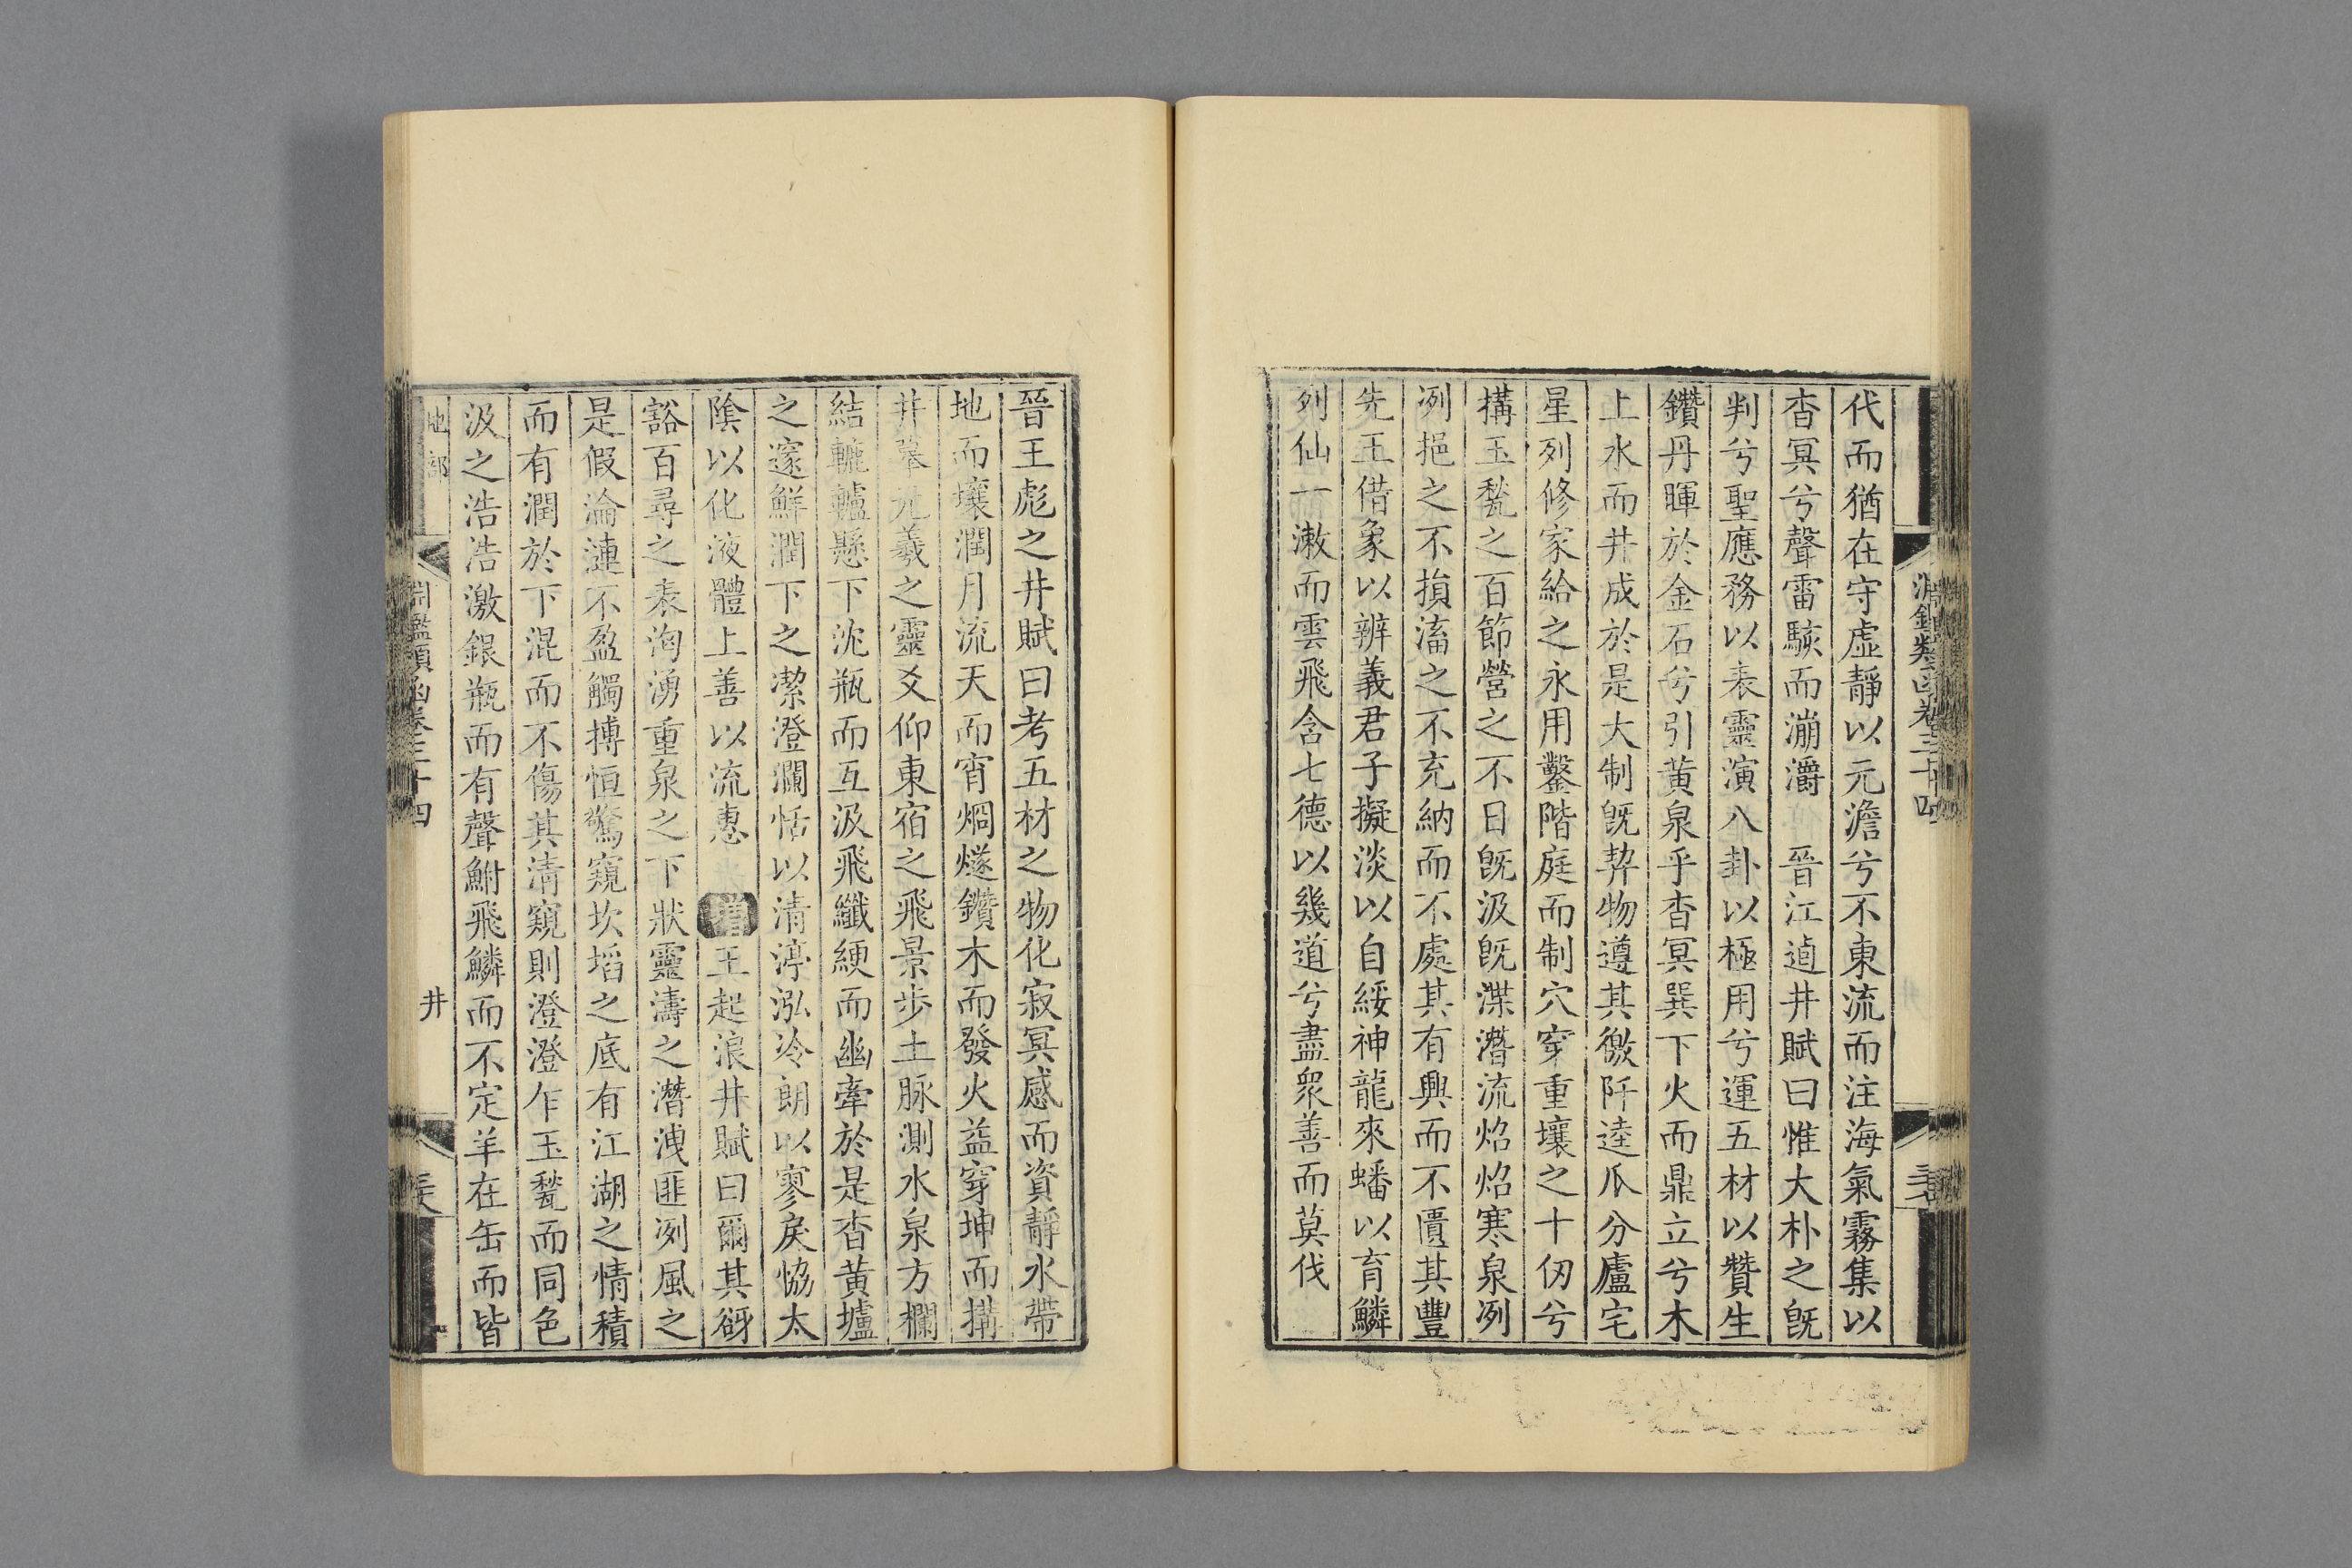 代而猶在守虛靜以元澹兮不東流而注海氣霧集以
杳冥兮聲雷駭而漰灂　晉江逌井賦曰惟大朴之旣
判兮聖應務以表靈演八卦以極用兮運五材以贊生
鑽丹暉於金石兮引黃泉乎杳冥巽下火而鼎立兮木
上水而井成於是大制旣挈物遵其徼阡逵瓜分廬宅
星列修家給之永用鑿階庭而制穴穿重壤之十仞兮
搆玉甃之百節營之不日旣汲旣渫潛流炤炤寒泉冽
冽挹之不損滀之不充納而不處其有興而不匱其豐
先王借象以辨義君子擬淡以自綏神龍來蟠以育鱗
列仙一漱而雲飛含七德以幾道兮盡衆善而莫伐
晉王彪之井賦曰考五材之物化寂冥感而資靜水帶
地而壤潤月流天而宵烱燧鑽木而發火益穿坤而搆
井蓽元羲之靈爻仰東宿之飛景步土脉測水泉方欄
結轆轤懸下沈瓶而互汲飛纖綆而幽牽於是杳黃壚
之邃鮮潤下之潔澄瀾恬以清渟泓冷朗以寥戾恊太
陰以化液體上善以流惠　增王起浪井賦曰爾其谺
豁百尋之表洶湧重泉之下狀靈濤之潛洩匪冽風之
是假淪漣不盈觸搏恒驚窺坎埳之底有江湖之情積
而有潤於下混而不傷其清窺則澄澄乍玉甃而同色
汲之浩浩激銀瓶而有聲鮒飛鱗而不定羊在缶而皆
地部
淵鑑類函卷三十四
井